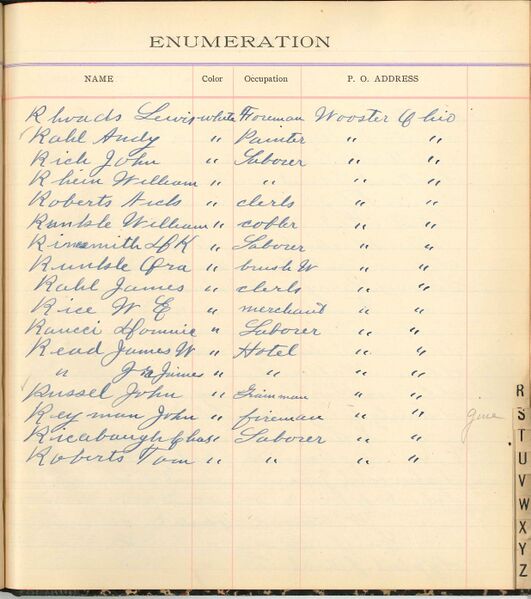 ENUMERATION
NAME Color Occupation P. O. ADDRESS
Rhoads Lewis white Foreman Wooster Ohio
Rahl Andy " Painter " "
Rich John " Laborer " "
Rhein William " " " "
Roberts Nick " clerk " "
Runkle William " cobler " "
Rinesmith D K " Laborer " "
Runkle Ora " brush W " "
Rahl James " clerk " "
Rice W E " merchant " "
Raucci Donnie " Laborer " "
Read James W " Hotel " "
" Jr James " " " "
Russel John " " "
Reyman John " fireman " "
Ricabaugh Chas " Laborer " "
Roberts Tom " " " "
R
S
T
U
V
W
X
Y
Z